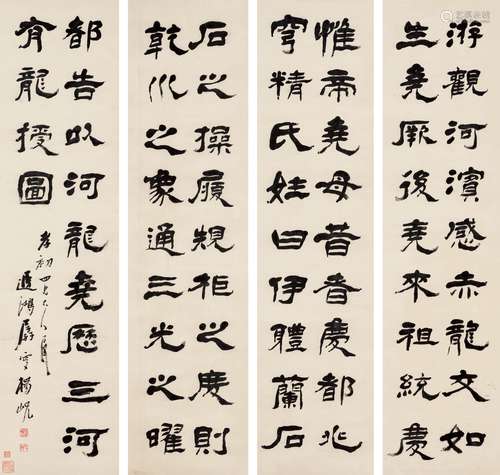 游觀河濱感赤龍交如
生堯厥後堯來祖統慶
惟帝堯母昔者慶都兆
穹精氏姓曰伊體蘭石
石之操履規柜之度則
乾巛之象通三光之曜
都告以河龍堯歷三河
有龍授圖
初四兄大人屬
遲鴻孱叟楊峴